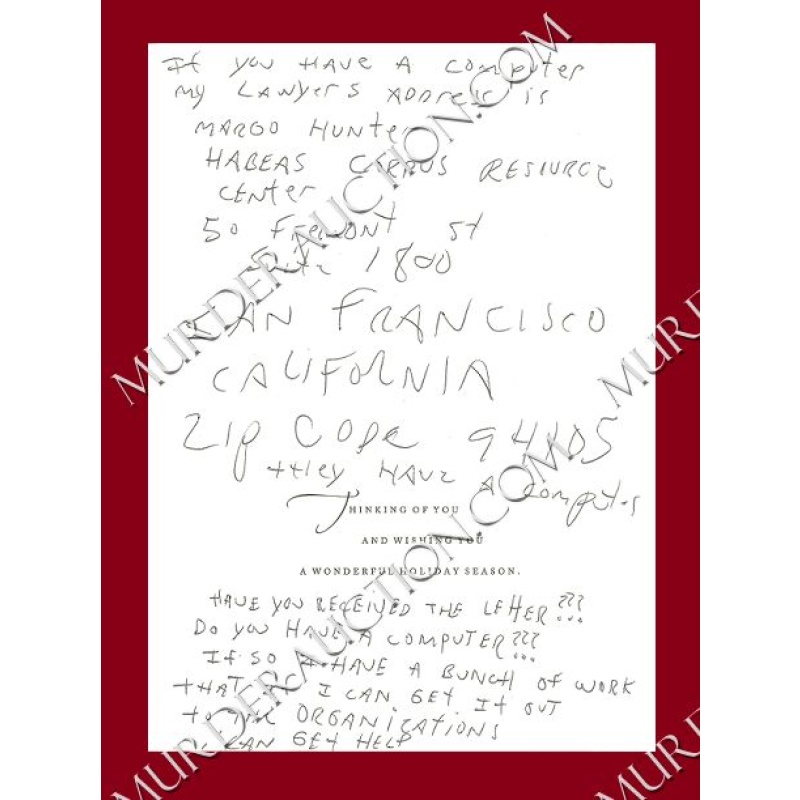 If you HAVE A computer
my LAWyers ADDress is
MARGO HUNter
HABEAS CORPUS RESOURCE
CENter
50 FREMONT St
Suite 1800
SAN FRANCISCO
CALIFORNIA
Zip CODE 94105
tHey HAVE A computer
THINKING OF YOU
AND WISHING YOU
A WONDERFUL HOLIDAY SEASON.
HAVE you RECEIVED THE LETTER???
Do you HAVE A COMPUTER???
If so I HAVE A BUNCH of WORK
THAT I CAN GET It OUT
to ORGANIZATIONS
CAN GET HELP
MURDERAUCTION.COM
MURDERAUCTION.COM